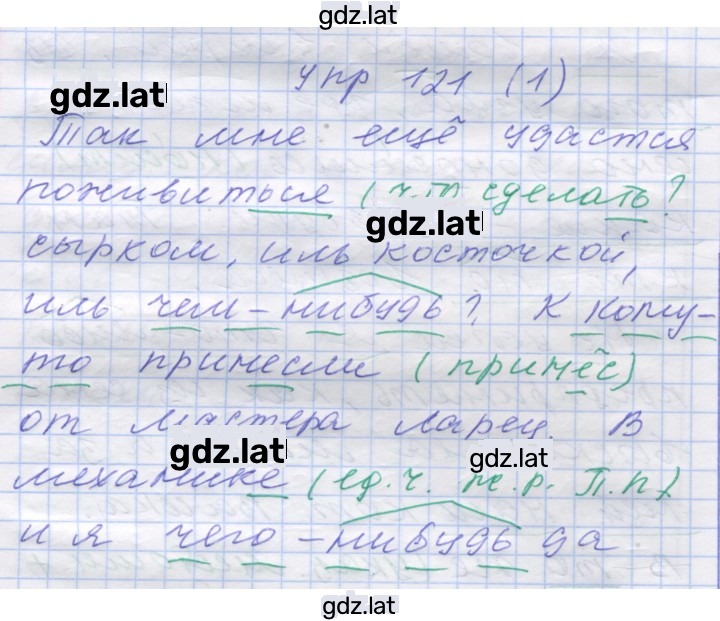 gdz.lat
Упр 121 (1)
gdz.lat
Так мне ещё удастся
поживиться (что сделать?
gdz.lat
сырком, иль косточкой,
иль чем-нибудь? К кому-
то принесли (принёс)
от мастера ларец. В
gdz.lat
gdz.lat
механике (ед.ч. ж.р. П.п.)
и я чего-нибудь да
gdz.lat